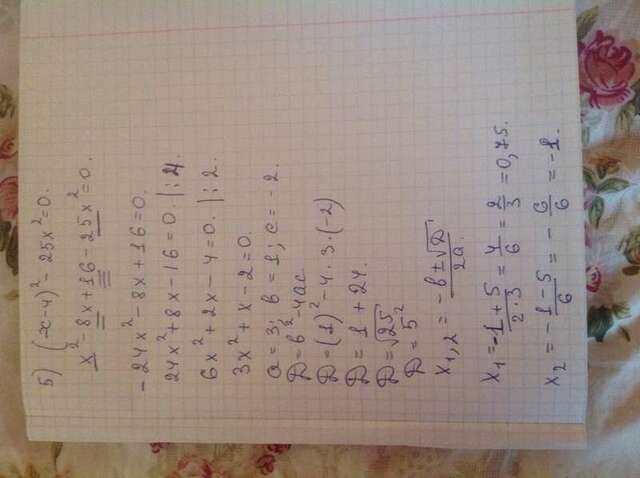 5) (x-4)² - 25x² = 0.
x² - 8x + 16 - 25x² = 0.
-24x² - 8x + 16 = 0.
24x² + 8x - 16 = 0. | : 4.
6x² + 2x - 4 = 0. | : 2.
3x² + x - 2 = 0.
a = 3; b = 1; c = -2.
D = b² - 4ac
D = (1)² - 4 · 3 · (-2)
D = 1 + 24.
D = √25
D = 5²
x₁,₂ = -b ± √D / 2a.
x₁ = -1 + 5 / 2·3 = 4/6 = 2/3 = 0,75.
x₂ = -1 - 5 / 6 = - 6/6 = -1.